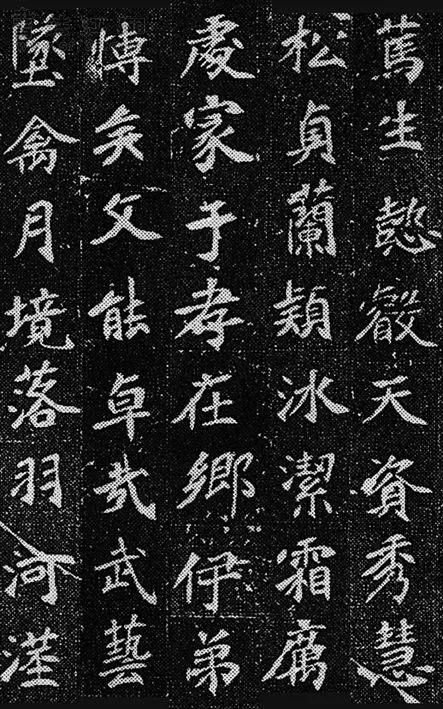 篤生懿叡天資秀慧
松貞蘭穎冰潔霜厲
處家于孝在鄉伊弟
博矣文能卓哉武藝
墜禽月境落羽河漢